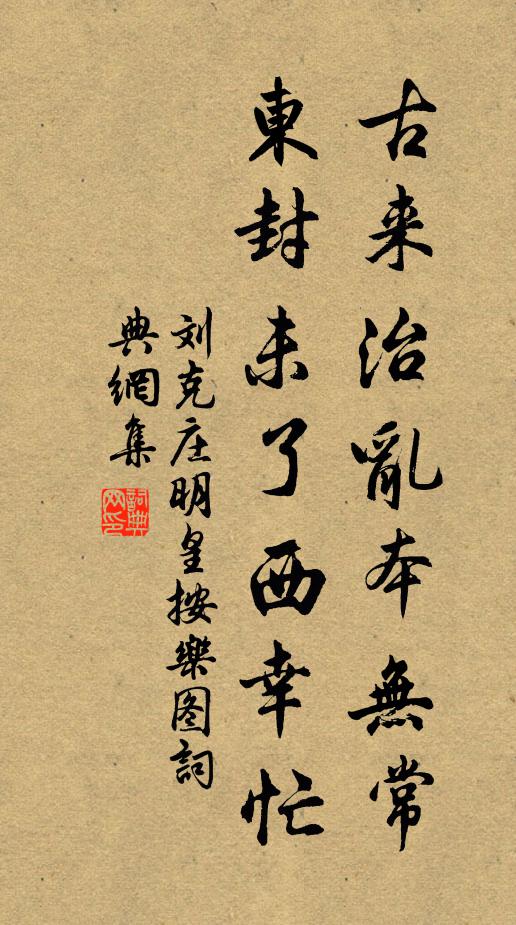 古来治亂本無常
東封未了西幸忙
刘克庄明皇按樂图詞
典網集
詞典網印